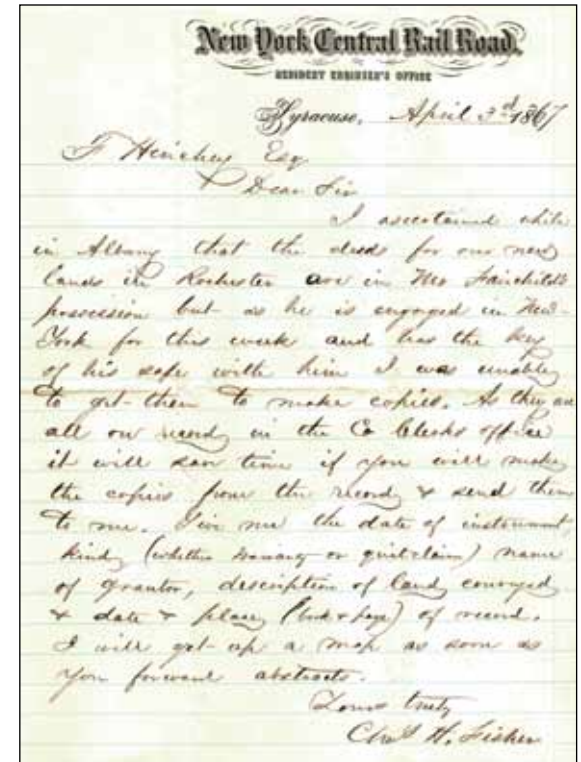 New York Central Rail Road.
RESIDENT ENGINEER'S OFFICE
Syracuse, April 3rd 1867
F Hinchey Esq
Dear Sir
I ascertained while
in Albany that the deeds for our new
lands in Rochester are in Mr Fairchild's
possession but as he is engaged in New-
York for this week and has the key
of his safe with him I was unable
to get them to make copies. As they are
all on record in the Co Clerks office
it will save time if you will make
the copies from the record & send them
to me. Give me the date of instrument,
kind (whether warranty or quitclaim) name
of grantor, description of land conveyed
& date & place (book & page) of record.
I will get up a map as soon as
you forward abstracts.
Yours truly
Chas H. Fisher